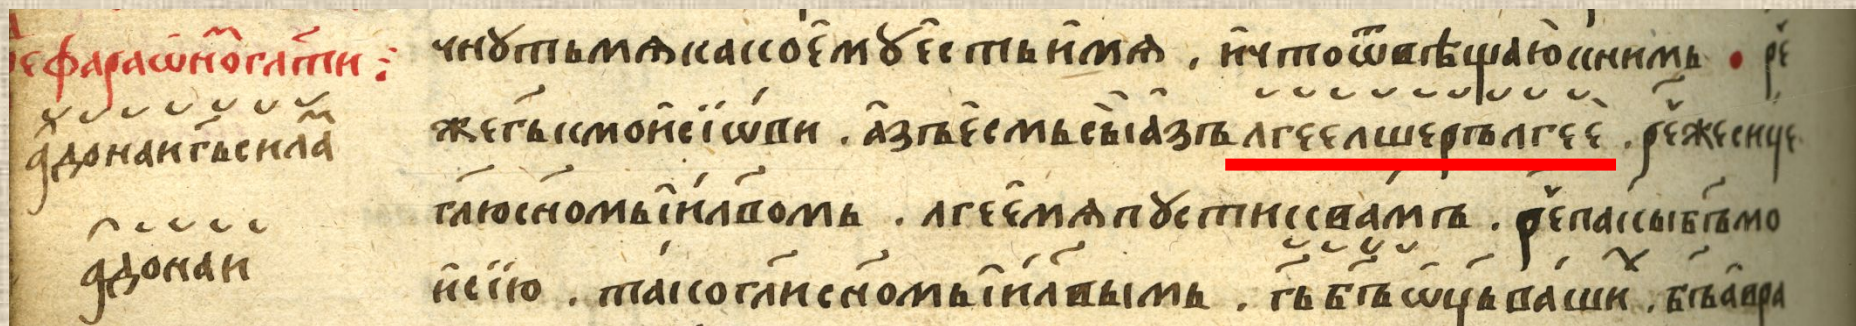 ефараѡнꙋглати :
адонаигьсилам
адонаи
чнꙋтьмѧкакоемꙋ̑естьимѧ . ичтоѿвѣщаюкнимь . ре
жегькмоисіѡви . азъесмьсыіазългеелшерългее . режесице
глюсномьіилвомь . лгееемѧпꙋстиквамъ . репакыбгъмо
исію . такоглисномьіилвымь . гьбгъѡцьваши . бгъавра